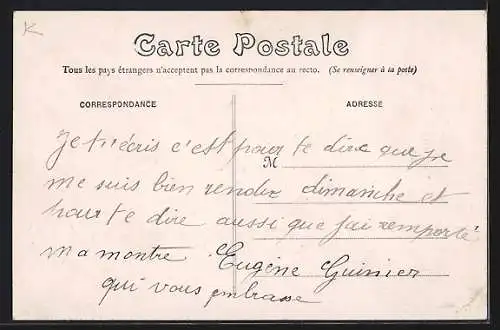 K
Carte Postale
Tous les pays étrangers n'acceptent pas la correspondance au recto. (Se renseigner à la poste)
CORRESPONDANCE
ADRESSE
M
Je t'écris c'est pour te dire que je
me suis bien rendez dimanche et
pour te dire aussi que j'ai remporté
ma montre Eugène Guinier
qui vous embrasse